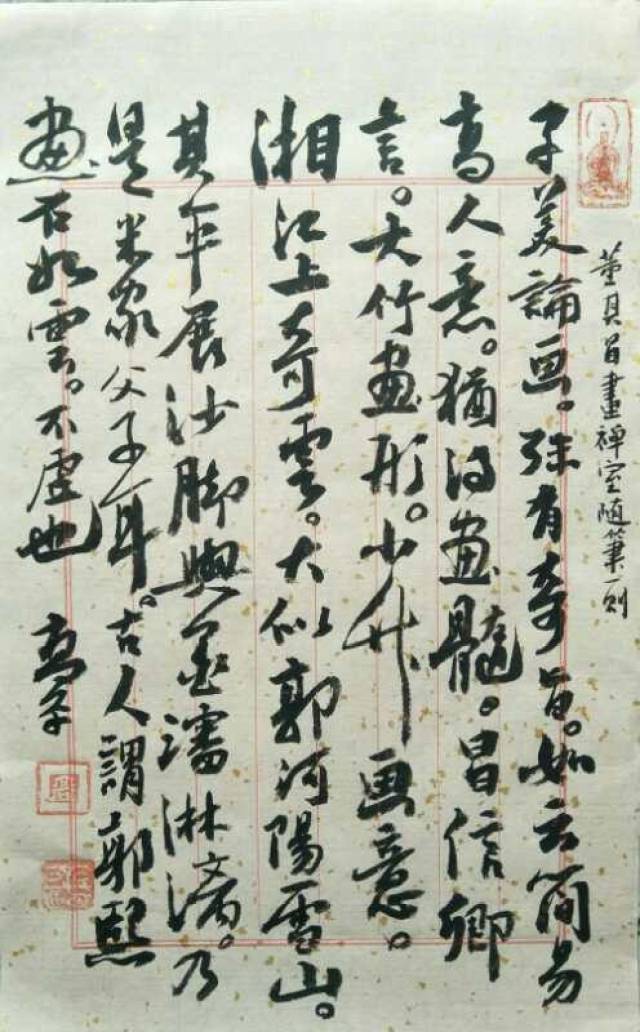 董其昌畫禪室随筆一则
子美論画。殊有奇旨。如云簡易
高人意。猶得畫髓。昌信卿
言。大竹畫形。小竹画意。
湘江上奇雲。大似郭河陽雪山。
其平展沙脚與墨瀋淋漓。乃
是米家父子耳。古人謂郭熙
畫石如雲。不虚也